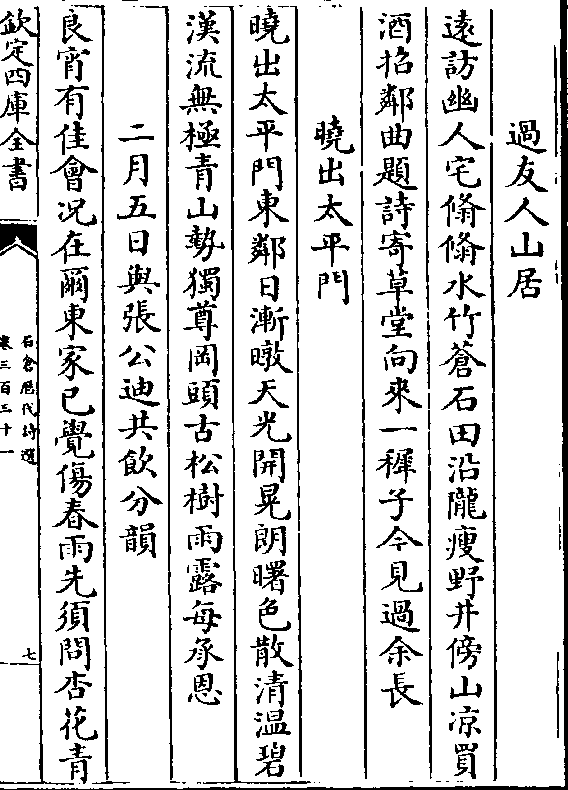 過友人山居
遠訪幽人宅翛翛水竹蒼石田沿隴瘦野井傍山凉買
酒招鄰曲題詩寄草堂向來一穉子今見過余長
曉出太平門
曉出太平門東鄰日漸暾天光開晃朗曙色散清温碧
漢流無極青山勢獨尊岡頭古松樹雨露每承恩
二月五日與張公迪共飲分韻
良宵有佳會况在爾東家已覺傷春雨先須問杏花青
欽定四庫全書
石倉歷代詩選
卷三百三十一
七